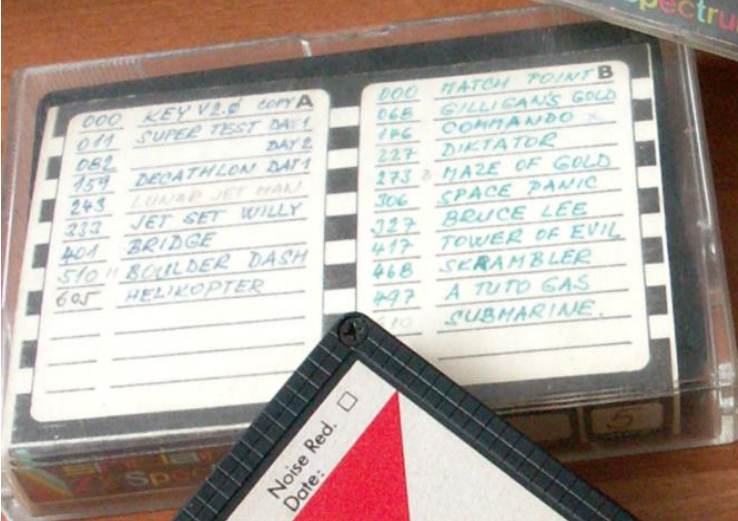 Spectru
000 KEY V2.0 COPY A
011 SUPER TEST DAY 1
082 DAY 2
159 DECATHLON DAY 1
243 LUNAR JET MAN
333 JET SET WILLY
401 BRIDGE
510 BOULDER DASH
605 HELIKOPTER
000 MATCH POINT B
068 GILLIGAN'S GOLD
146 COMMANDO
227 DIKTATOR
273 MAZE OF GOLD
306 SPACE PANIC
327 BRUCE LEE
417 TOWER OF EVIL
468 SKRAMBLER
497 A TUTO GAS
SUBMARINE.
5
Noise Red.
Date: